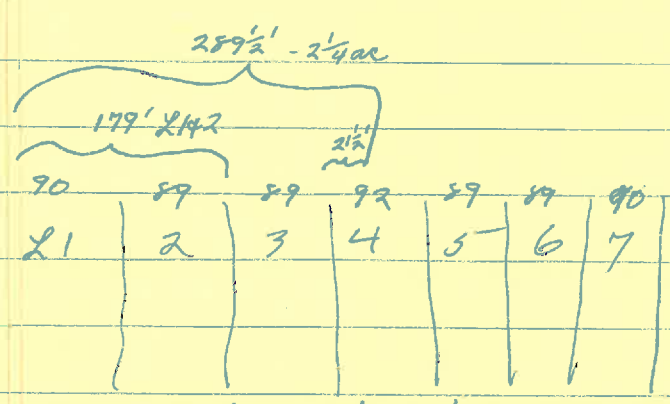 289½' - 2¼ ac
179' L1+2
21½'
90 89 89 92 89 89 90
L1 2 3 4 5 6 7